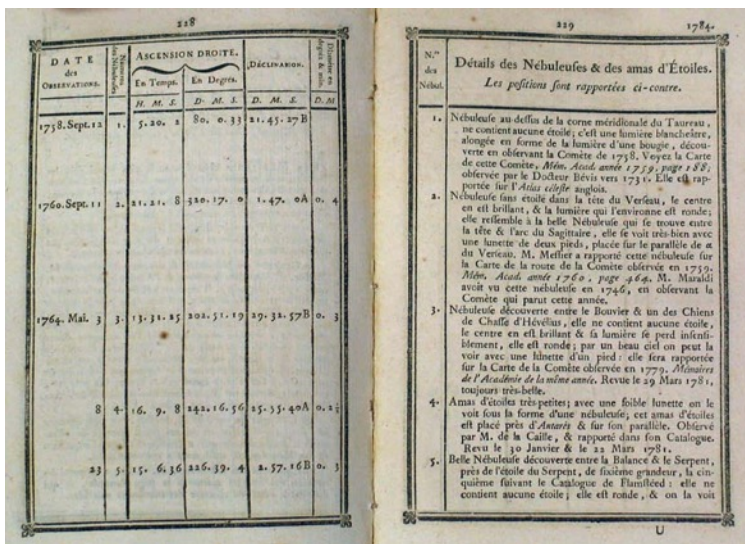 228
DATE
des
OBSERVATIONS.
Numéros
des Nébuleuses
ASCENSION DROITE.
En Temps. En Degrés.
DÉCLINAISON.
Diamètre en
degrés & min.
H. M. S. D. M. S. D. M. S. D. M
1758. Sept. 12 1. 5. 20. 2 80. 0. 33 21. 45. 27B
1760. Sept. 11 2. 21. 21. 8 320. 17. 0 1. 47. 0A 0. 4
1764. Mai. 3 3. 13. 31. 25 202. 51. 19 29. 32. 57B 0. 3
8 4. 16. 9. 8 242. 16. 56 25. 55. 40A 0. 2½
23 5. 15. 6. 36 226. 39. 4 2. 57. 16B 0. 3
229 1784.
N.os
des
Nébul.
Détails des Nébuleuſes & des amas d'Étoiles.
Les poſitions ſont rapportées ci-contre.
1. Nébuleuſe au-deſſus de la corne méridionale du Taureau,
ne contient aucune étoile; c'eſt une lumière blancheâtre,
alongée en forme de la lumière d'une bougie, décou-
verte en obſervant la Comète de 1758. Voyez la Carte
de cette Comète, Mém. Acad. année 1759, page 188;
obſervée par le Docteur Bévis vers 1731. Elle eſt rap-
portée ſur l'Atlas céleſte anglois.
2. Nébuleuſe ſans étoile dans la tête du Verſeau, le centre
en eſt brillant, & la lumière qui l'environne eſt ronde;
elle reſſemble à la belle Nébuleuſe qui ſe trouve entre
la tête & l'arc du Sagittaire, elle ſe voit très-bien avec
une lunette de deux pieds, placée ſur le parallèle de α
du Verſeau. M. Meſſier a rapporté cette nébuleuſe ſur
la Carte de la route de la Comète obſervée en 1759.
Mém. Acad. année 1760, page 464. M. Maraldi
avoit vu cette nébuleuſe en 1746, en obſervant la
Comète qui parut cette année.
3. Nébuleuſe découverte entre le Bouvier & un des Chiens
de Chaſſe d'Hévélius, elle ne contient aucune étoile,
le centre en eſt brillant & ſa lumière ſe perd inſenſi-
blement, elle eſt ronde; par un beau ciel on peut la
voir avec une lunette d'un pied: elle ſera rapportée
ſur la Carte de la Comète obſervée en 1779. Mémoires
de l'Académie de la même année. Revue le 29 Mars 1781,
toujours très-belle.
4. Amas d'étoiles très-petites; avec une foible lunette on le
voit ſous la forme d'une nébuleuſe; cet amas d'étoiles
eſt placé près d'Antarès & ſur ſon parallèle. Obſervé
par M. de la Caille, & rapporté dans ſon Catalogue.
Revu le 30 Janvier & le 22 Mars 1781.
5. Belle Nébuleuſe découverte entre la Balance & le Serpent,
près de l'étoile du Serpent, de ſixième grandeur, la cin-
quième ſuivant le Catalogue de Flamſtéed: elle ne
contient aucune étoile; elle eſt ronde, & on la voit
U